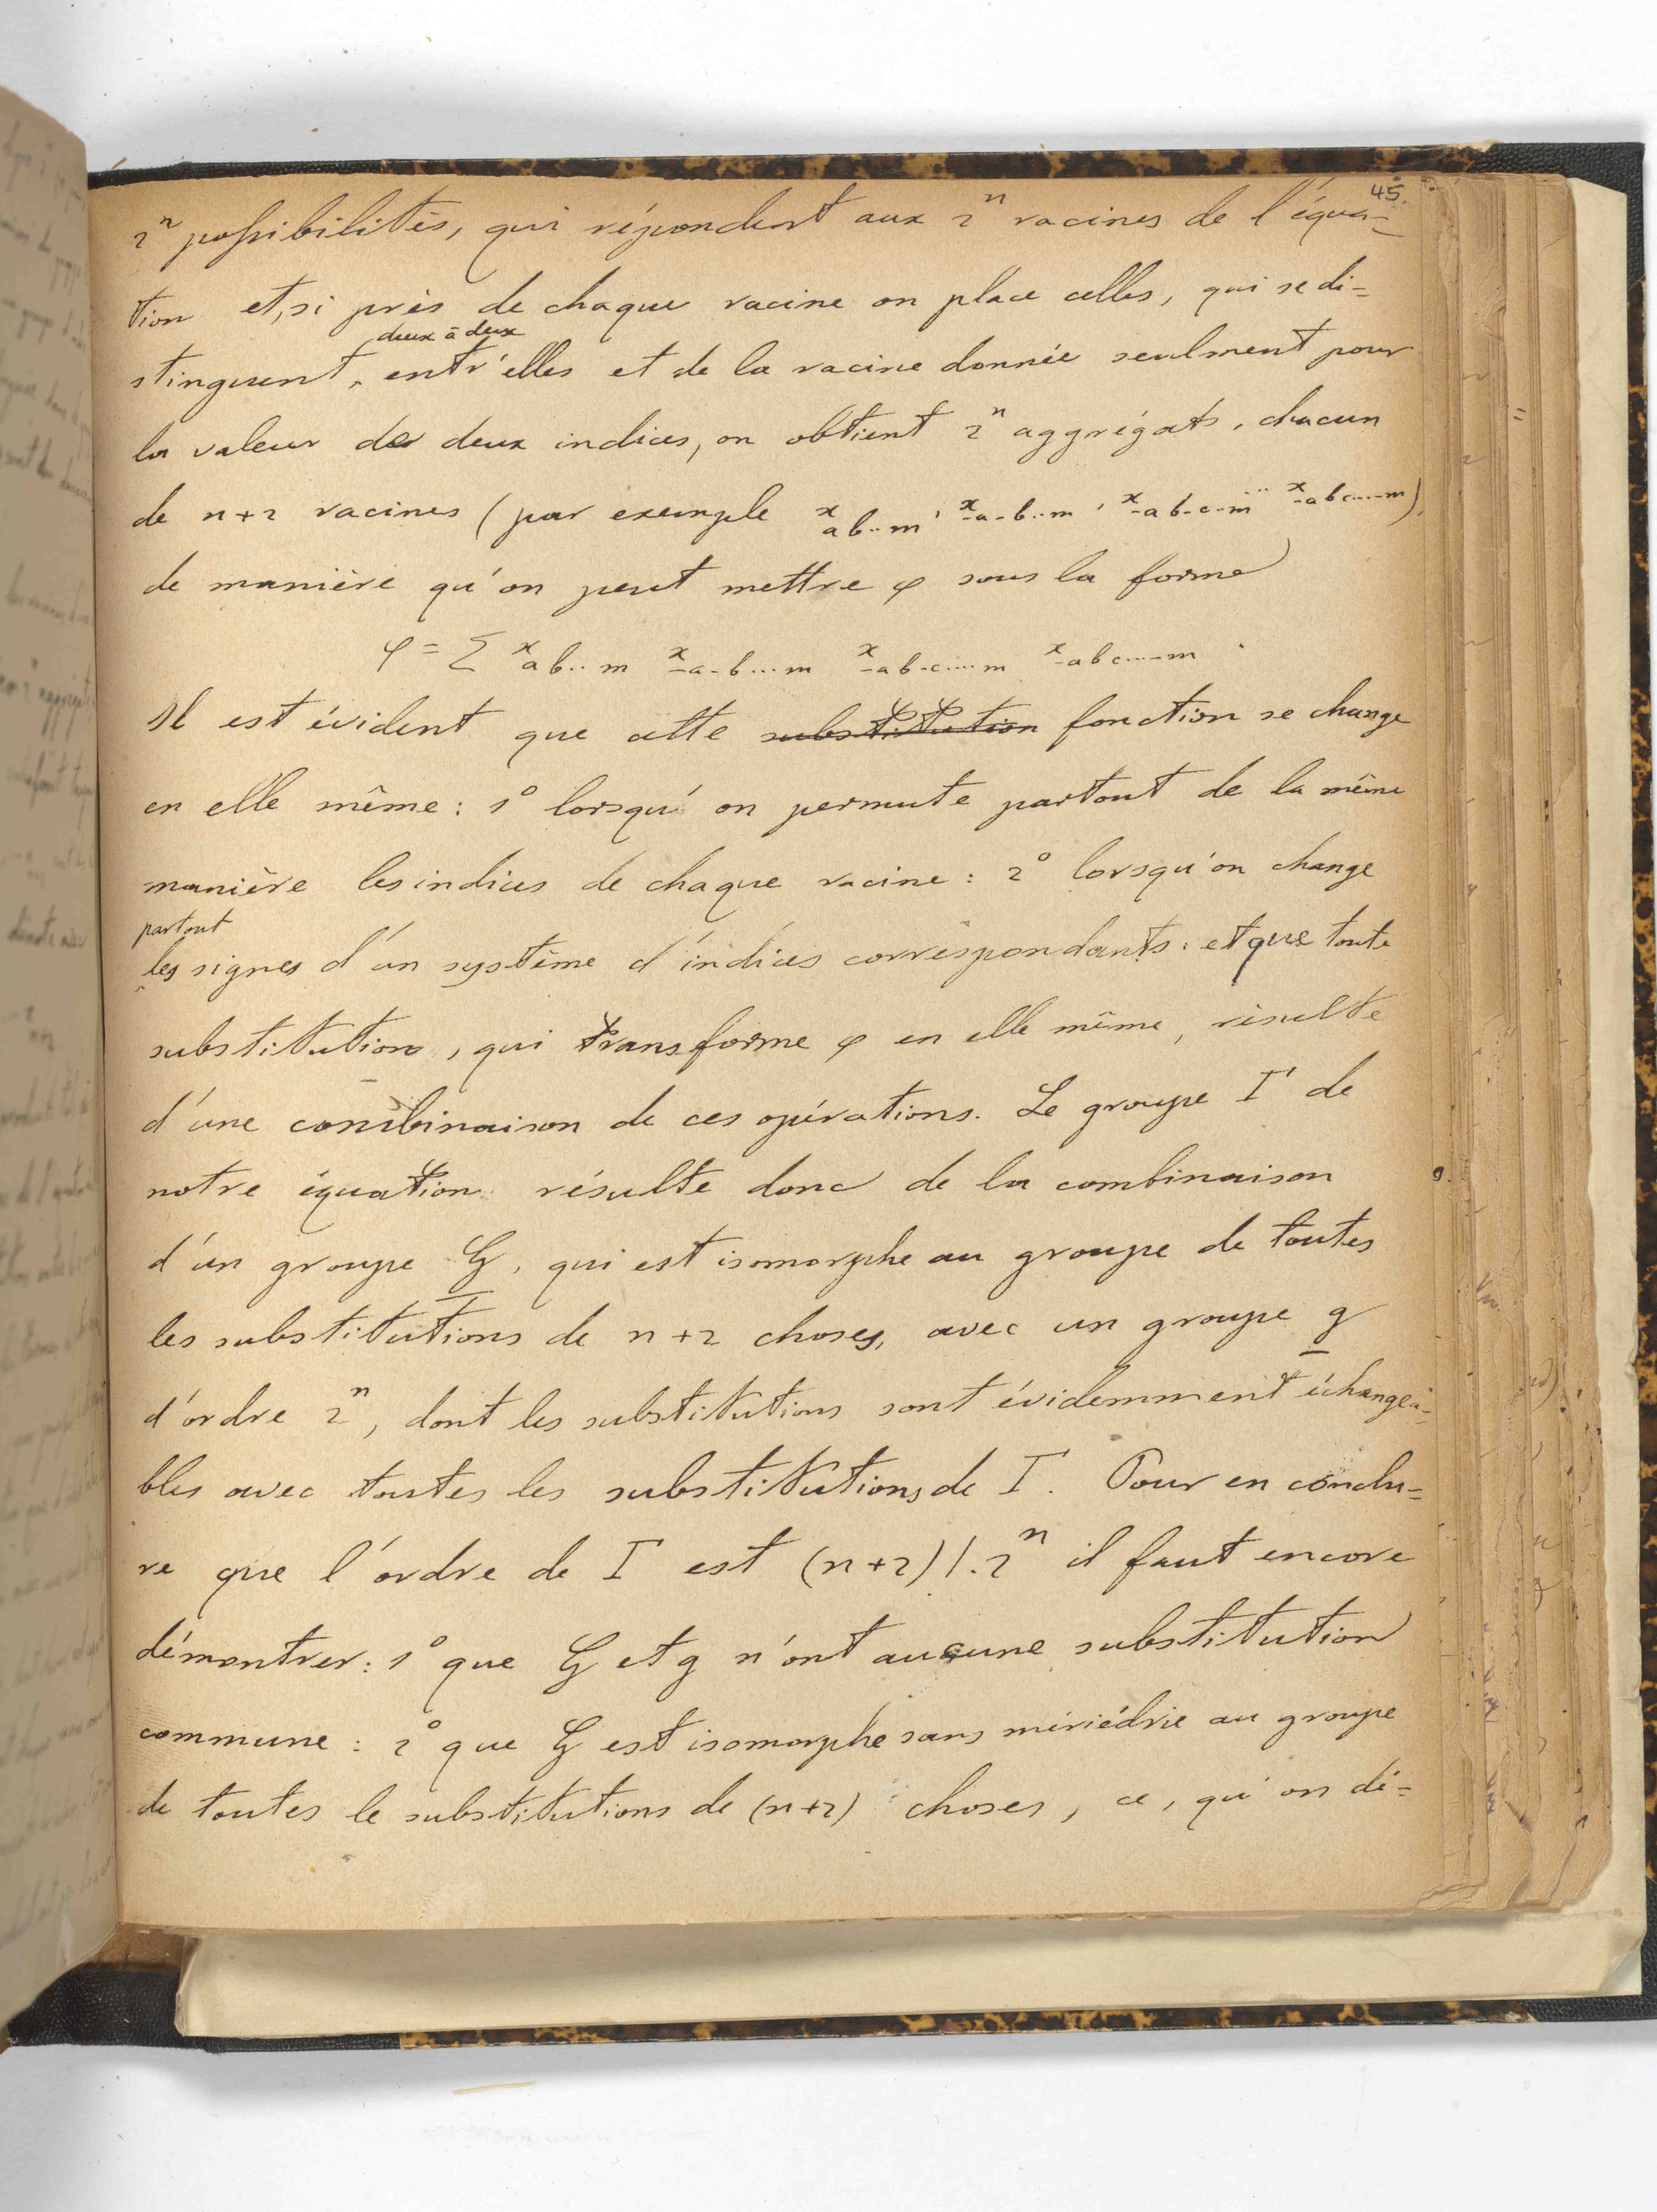 45.
2^n possibilités, qui répondent aux 2^n racines de l'équa=
tion et, si près de chaque racine on place celles, qui se di=
deux à deux
stinguent, entr'elles et de la racine donnée seulment pour
la valeur de deux indices, on obtient 2^n aggrégats, chacun
de n+2 racines (par exemple x_{ab..m}, x_{-a-b..m}, x_{-ab-c..m} ... x_{-abc....-m}),
de manière qu'on peut mettre φ sous la forme
φ = Σ x_{ab..m} x_{-a-b...m} x_{-ab-c....m} x_{-abc....-m}.
Il est évident que cette substitution fonction se change
en elle même: 1° lorsqu'on permute partout de la même
manière les indices de chaque racine: 2° lorsqu'on change
partout
les signes d'un système d'indices correspondants: et que toute
substitution, qui transforme φ en elle même, résulte
d'une combinaison de ces opérations. Le groupe Γ de
notre équation résulte donc de la combinaison
d'un groupe G, qui est isomorphe au groupe de toutes
les substitutions de n+2 choses, avec un groupe g
d'ordre 2^n, dont les substitutions sont évidemment échangea=
bles avec toutes les substitutions de Γ. Pour en conclu=
re que l'ordre de Γ est (n+2)!.2^n il faut encore
démontrer: 1° que G et g n'ont aucune substitution
commune: 2° que G est isomorphe sans mériédrie au groupe
de toutes le substitutions de (n+2) choses, ce, qu'on dé=